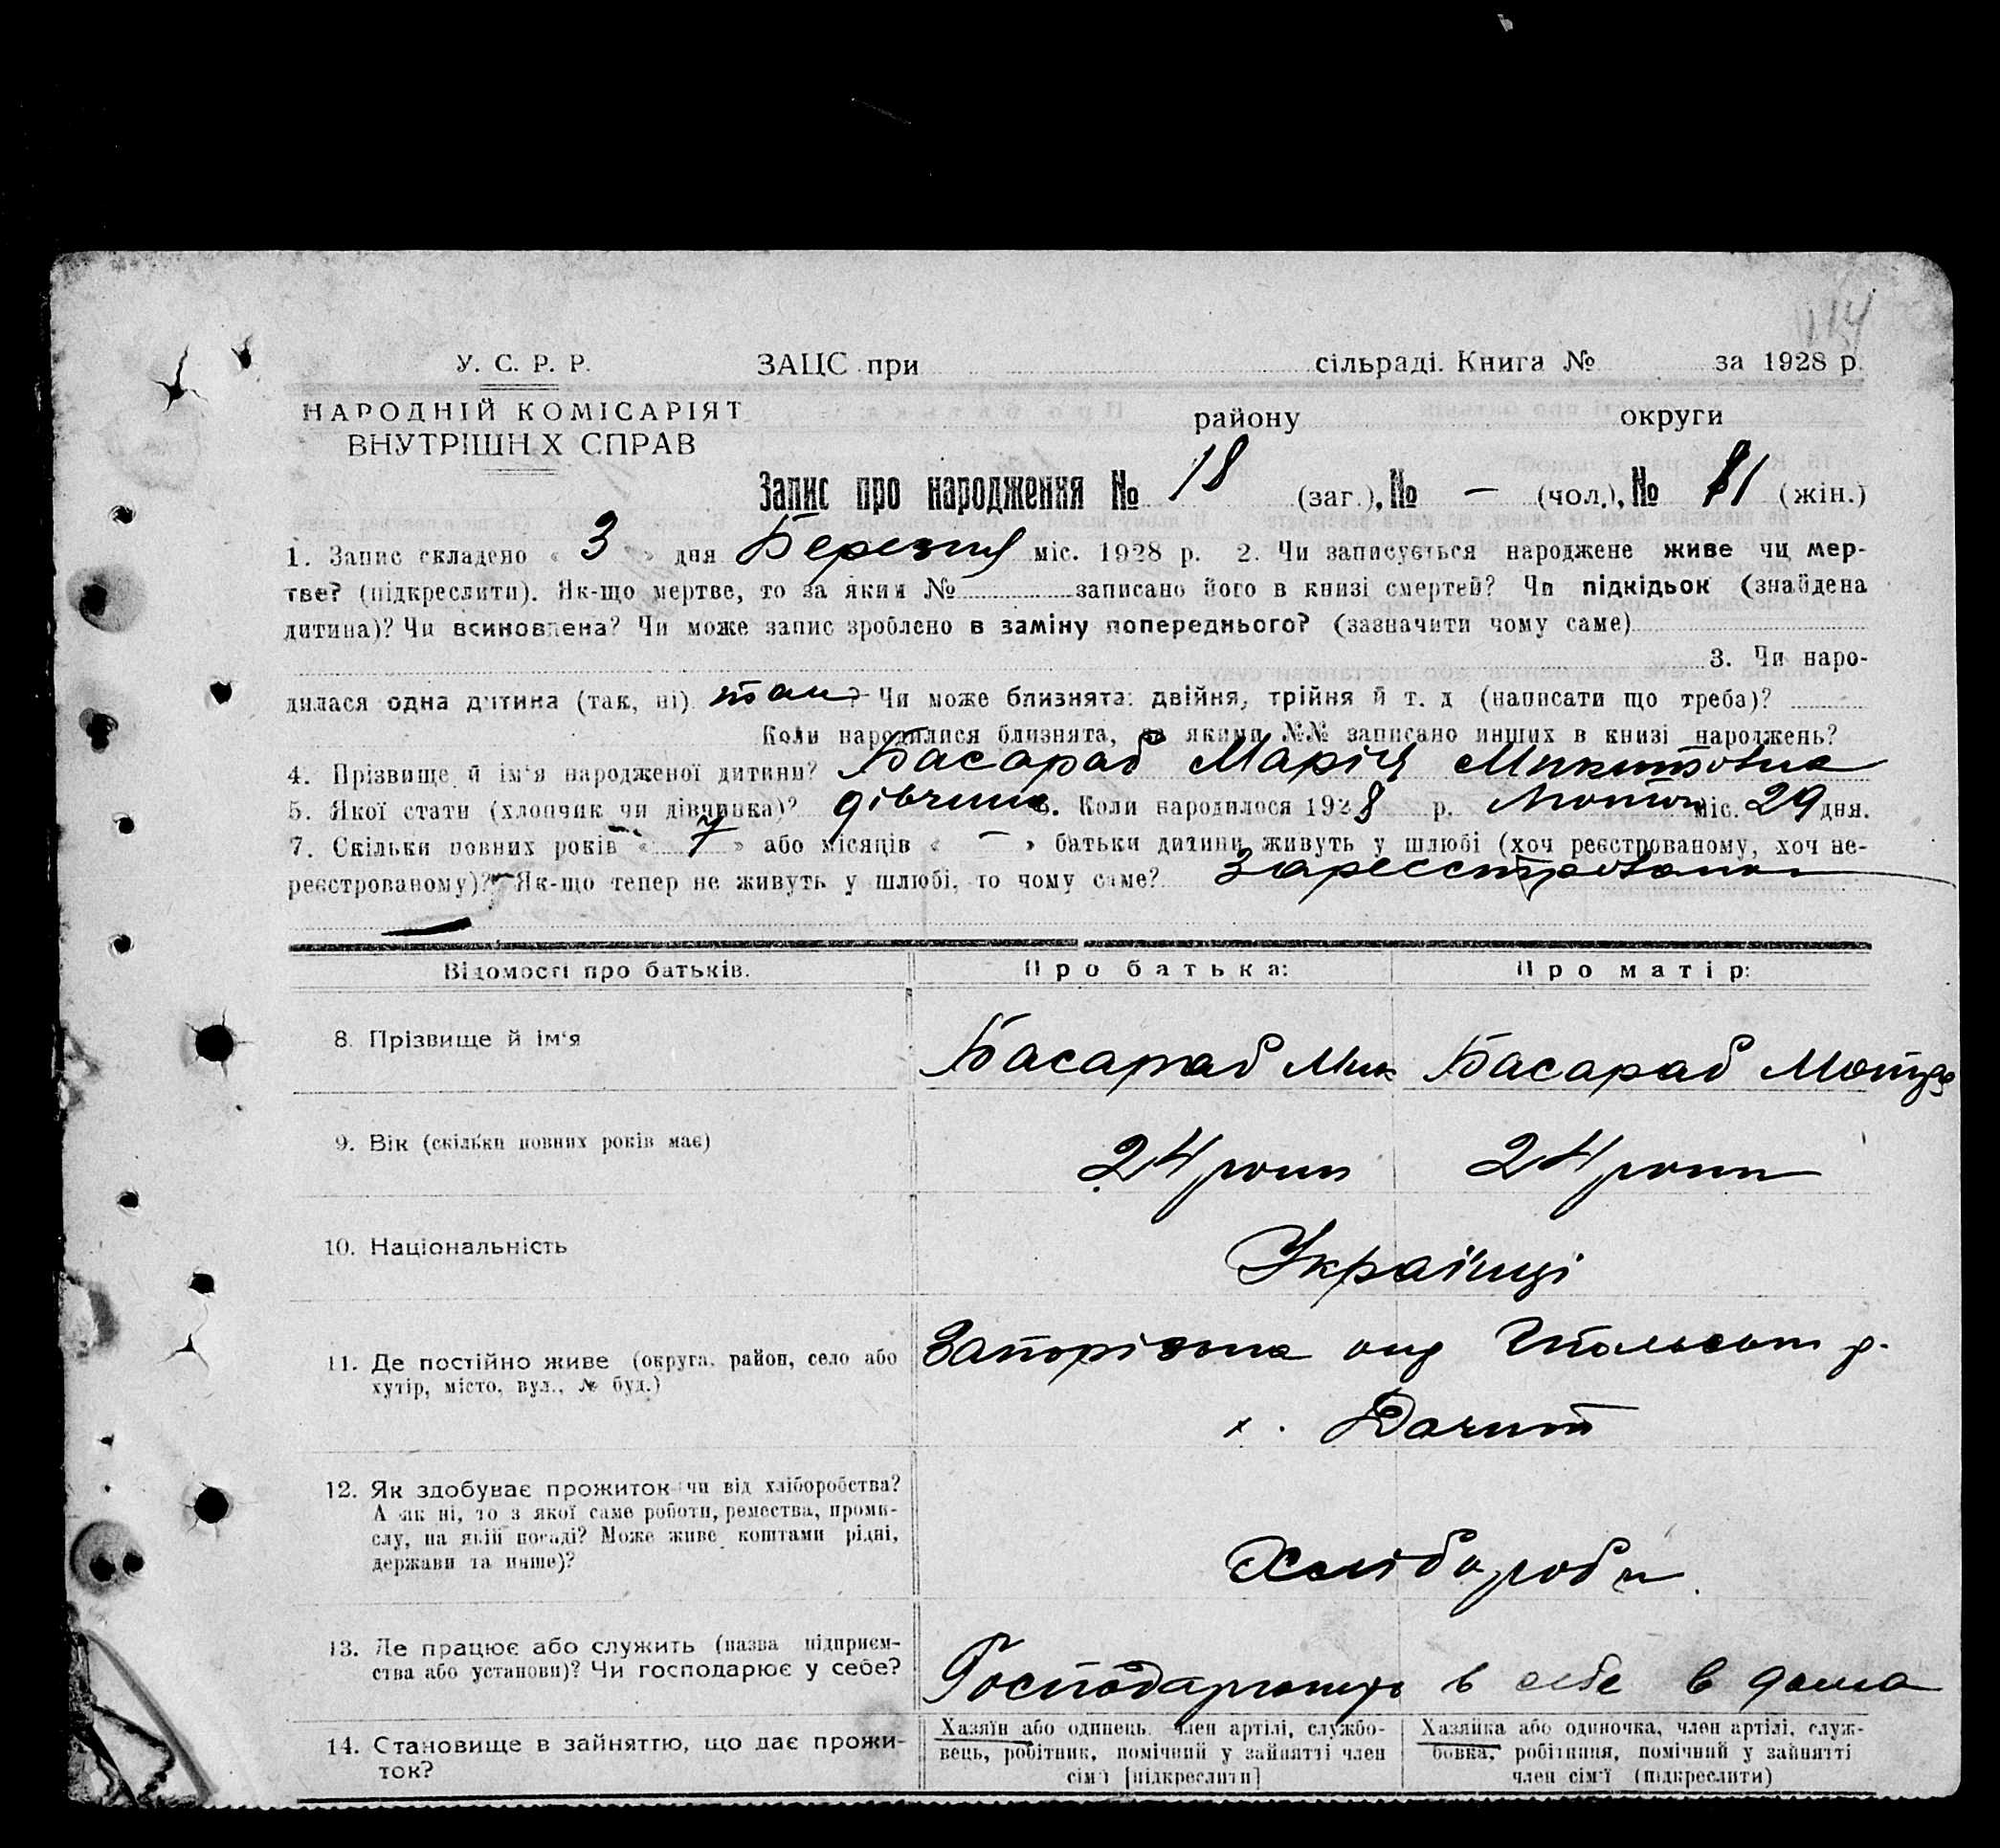 114
У. С. Р. Р. ЗАЦС при сільраді. Книга № за 1928 р.
НАРОДНІЙ КОМІСАРІЯТ району округи
ВНУТРІШН Х СПРАВ
Запис про народження № 18 (заг.), № – (чол.), № 11 (жін.)
1. Запис складено « 3 » дня Березня міс. 1928 р. 2. Чи записується народжене живе чи мер-
тве? (підкреслити). Як-що мертве, то за яким № записано його в книзі смертей? Чи підкідьок (знайдена
дитина)? Чи всиновлена? Чи може запис зроблено в заміну попереднього? (зазначити чому саме)
3. Чи наро-
дилася одна дитина (так, ні) так? Чи може близнята: двійня, трійня й т. д (написати що треба)?
Коли народилися близнята, за якими №№ записано инших в книзі народжень?
4. Прізвище й ім'я народженої дитини? Басараб Марія Микитовна
5. Якої стати (хлопчик чи дівчинка)? дівчина 6. Коли народилося 1928 р. Лютого міс. 29 дня.
7. Скільки повних років « 7 » або місяців « – » батьки дитини живуть у шлюбі (хоч реєстрованому, хоч не-
реєстрованому)? Як-що тепер не живуть у шлюбі, то чому саме? Зареєстровано
Відомості про батьків. Про батька: Про матір:
8. Прізвище й ім'я Басараб Мик Басараб Мотря
9. Вік (скільки повних років має) 24 роки 24 роки
10. Національність Українці
11. Де постійно живе (округа, район, село або Запорізька окр р.
хутір, місто, вул., № буд.) х.
12. Як здобуває прожиток чи від хліборобства?
А як ні, то з якої саме роботи, ремества, проми-
слу, на якій посаді? Може живе коштами рідні,
держави та инше)? Хлібороби.
13. Де працює або служить (назва підприєм-
ства або установи)? Чи господарює у себе? Господарюють в себе в дома
14. Становище в зайняттю, що дає прожи- Хазяїн або одинець, член артілі, службо- Хазяйка або одиночка, член артілі, служ-
ток? вець, робітник, помічний у зайнятті член бовка, робітниця, помічний у зайнятті
сім'ї [підкреслити] член сім'ї (підкреслити)